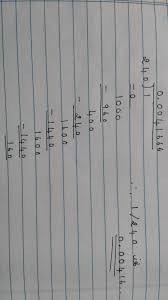 0.0041666
240)1
-0
1000
-960
400
-240
1600
-1440
1600
-1440
160
∴ 1/240 is
0.00416...